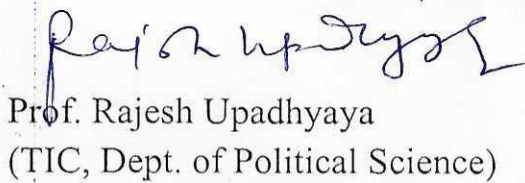 Rajesh Upadhyaya
Prof. Rajesh Upadhyaya
(TIC, Dept. of Political Science)